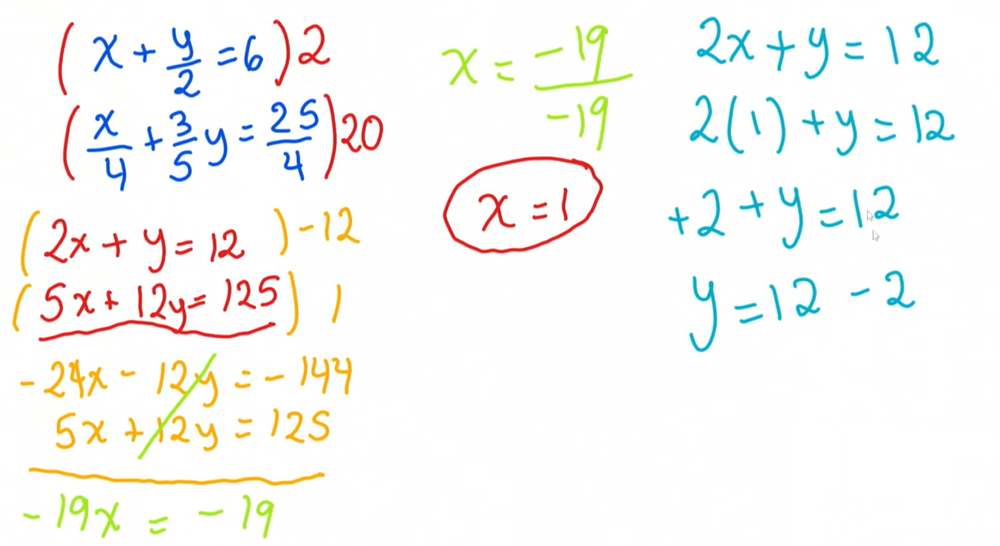 (x + y/2 = 6)2
(x/4 + 3/5 y = 25/4)20
(2x + y = 12) -12
(5x + 12y = 125) 1
-24x - 12y = -144
5x + 12y = 125
-19x = -19
x = -19/-19
x = 1
2x + y = 12
2(1) + y = 12
+2 + y = 12
y = 12 - 2